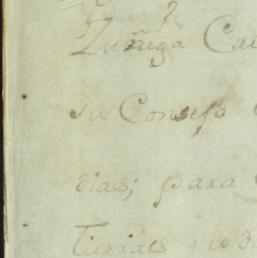 Zuñiga Ca
su Consejo
dias; para
Tierras, lo d